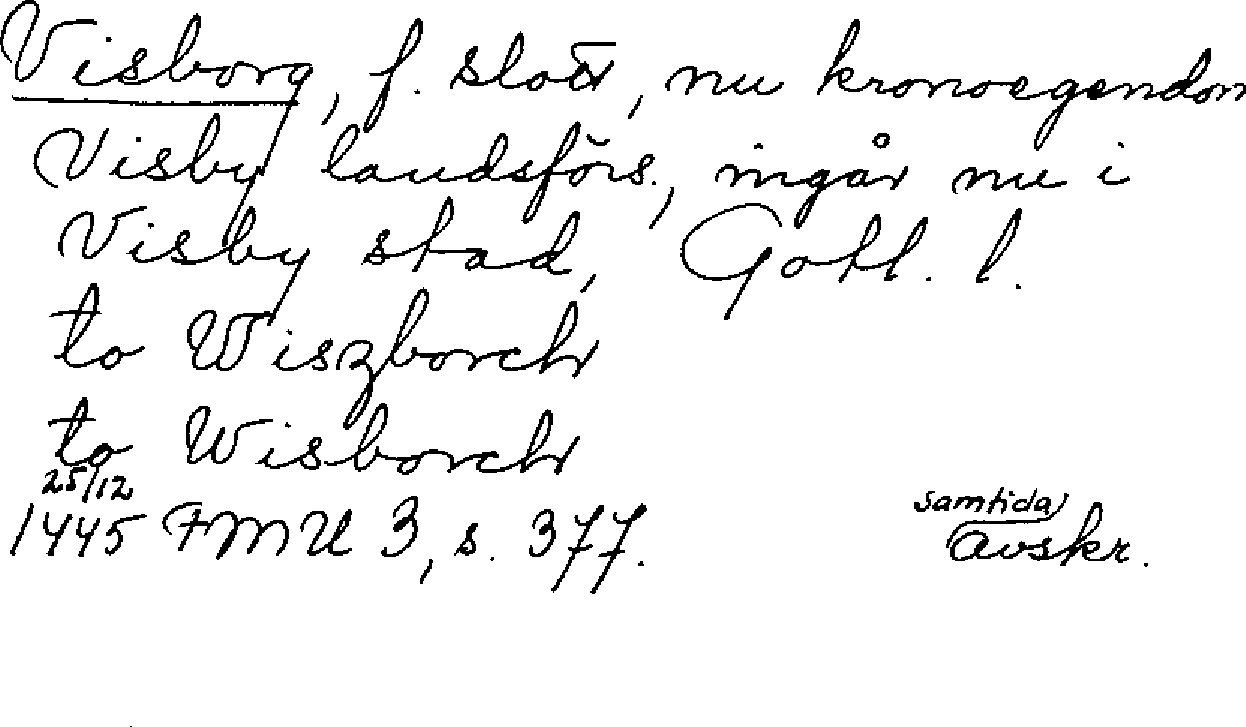 Visborg, f. slott, nu kronoegendom
Visby landsförs., ingår nu i
Visby stad, Gotl. l.
to Wiszborch
to Wisborch
25/12
1445 FMU 3, s. 377.
samtida
avskr.